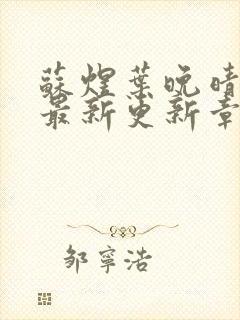 蘇煌葉晚晴
最新更新章
邹寧浩